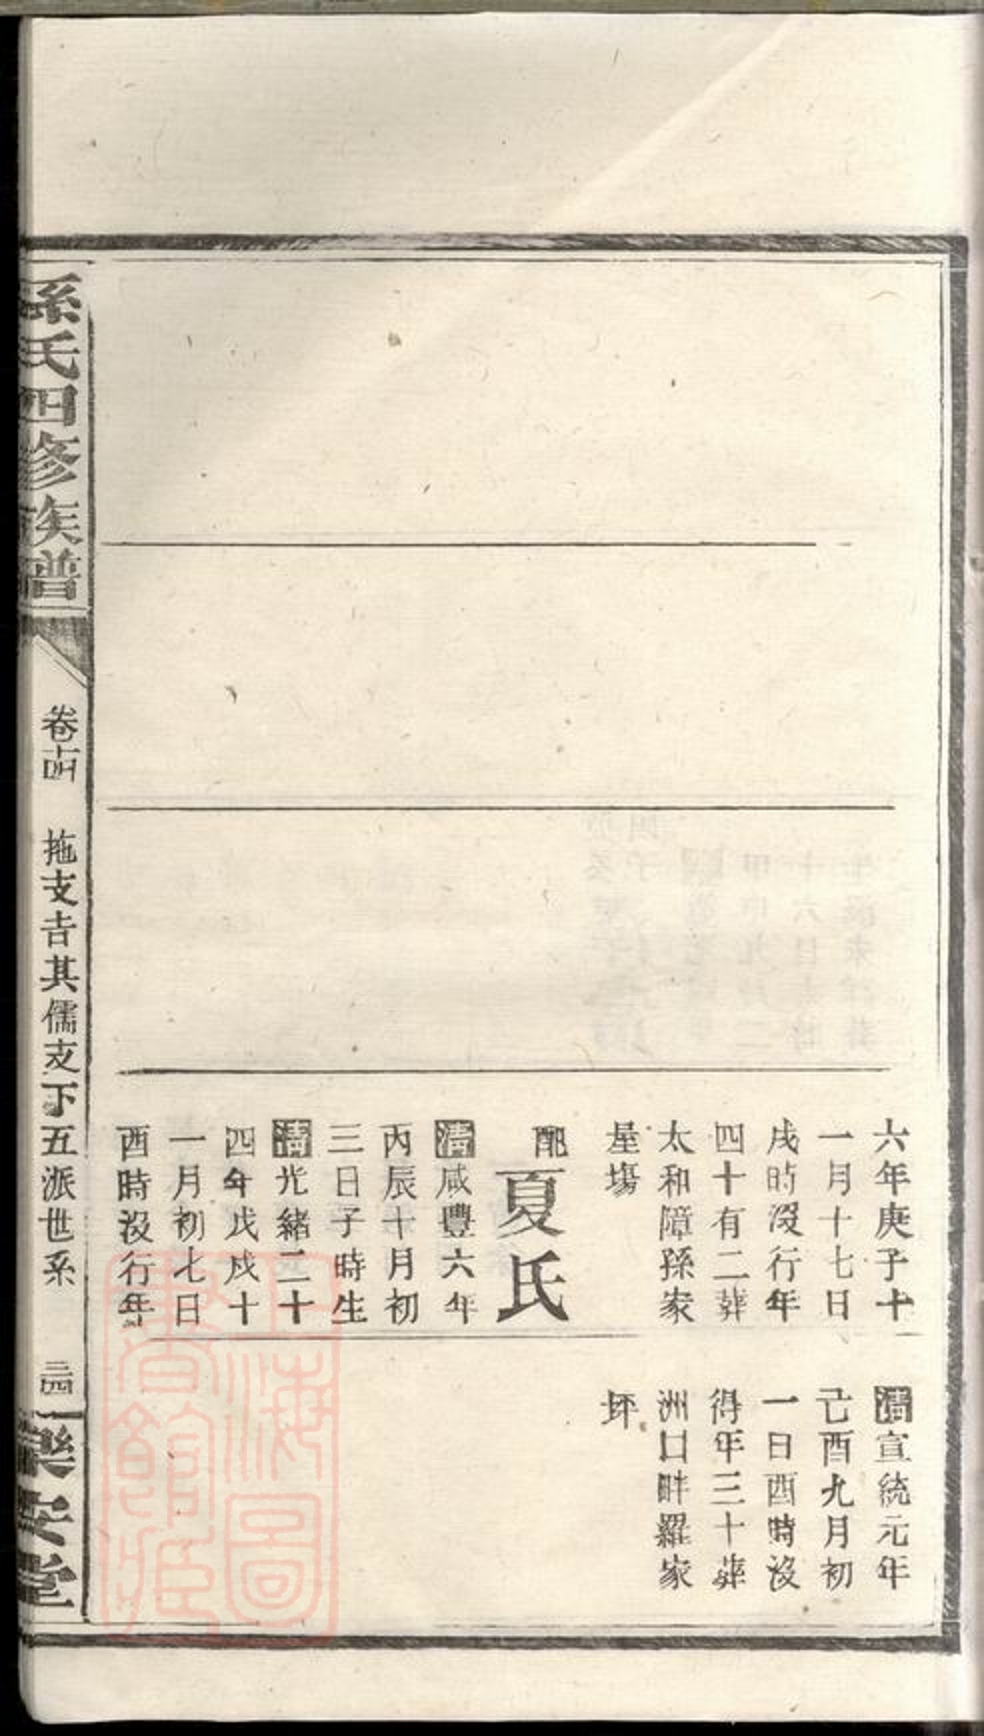 六年庚子十
一月十七日
戌時沒行年
四十有二葬
太和障孫家
屋塲
配
夏氏
清咸豐六年
丙辰十月初
三日子時生
清光緒二十
四年戊戌十
一月初七日
酉時沒行年
清宣統元年
己酉九月初
一日酉時沒
得年三十葬
洲口畔羅家
坪
孫氏四修族譜
卷十四
拖支吉其儒支下五派世系
三四
樂安堂
上海圖
書館藏